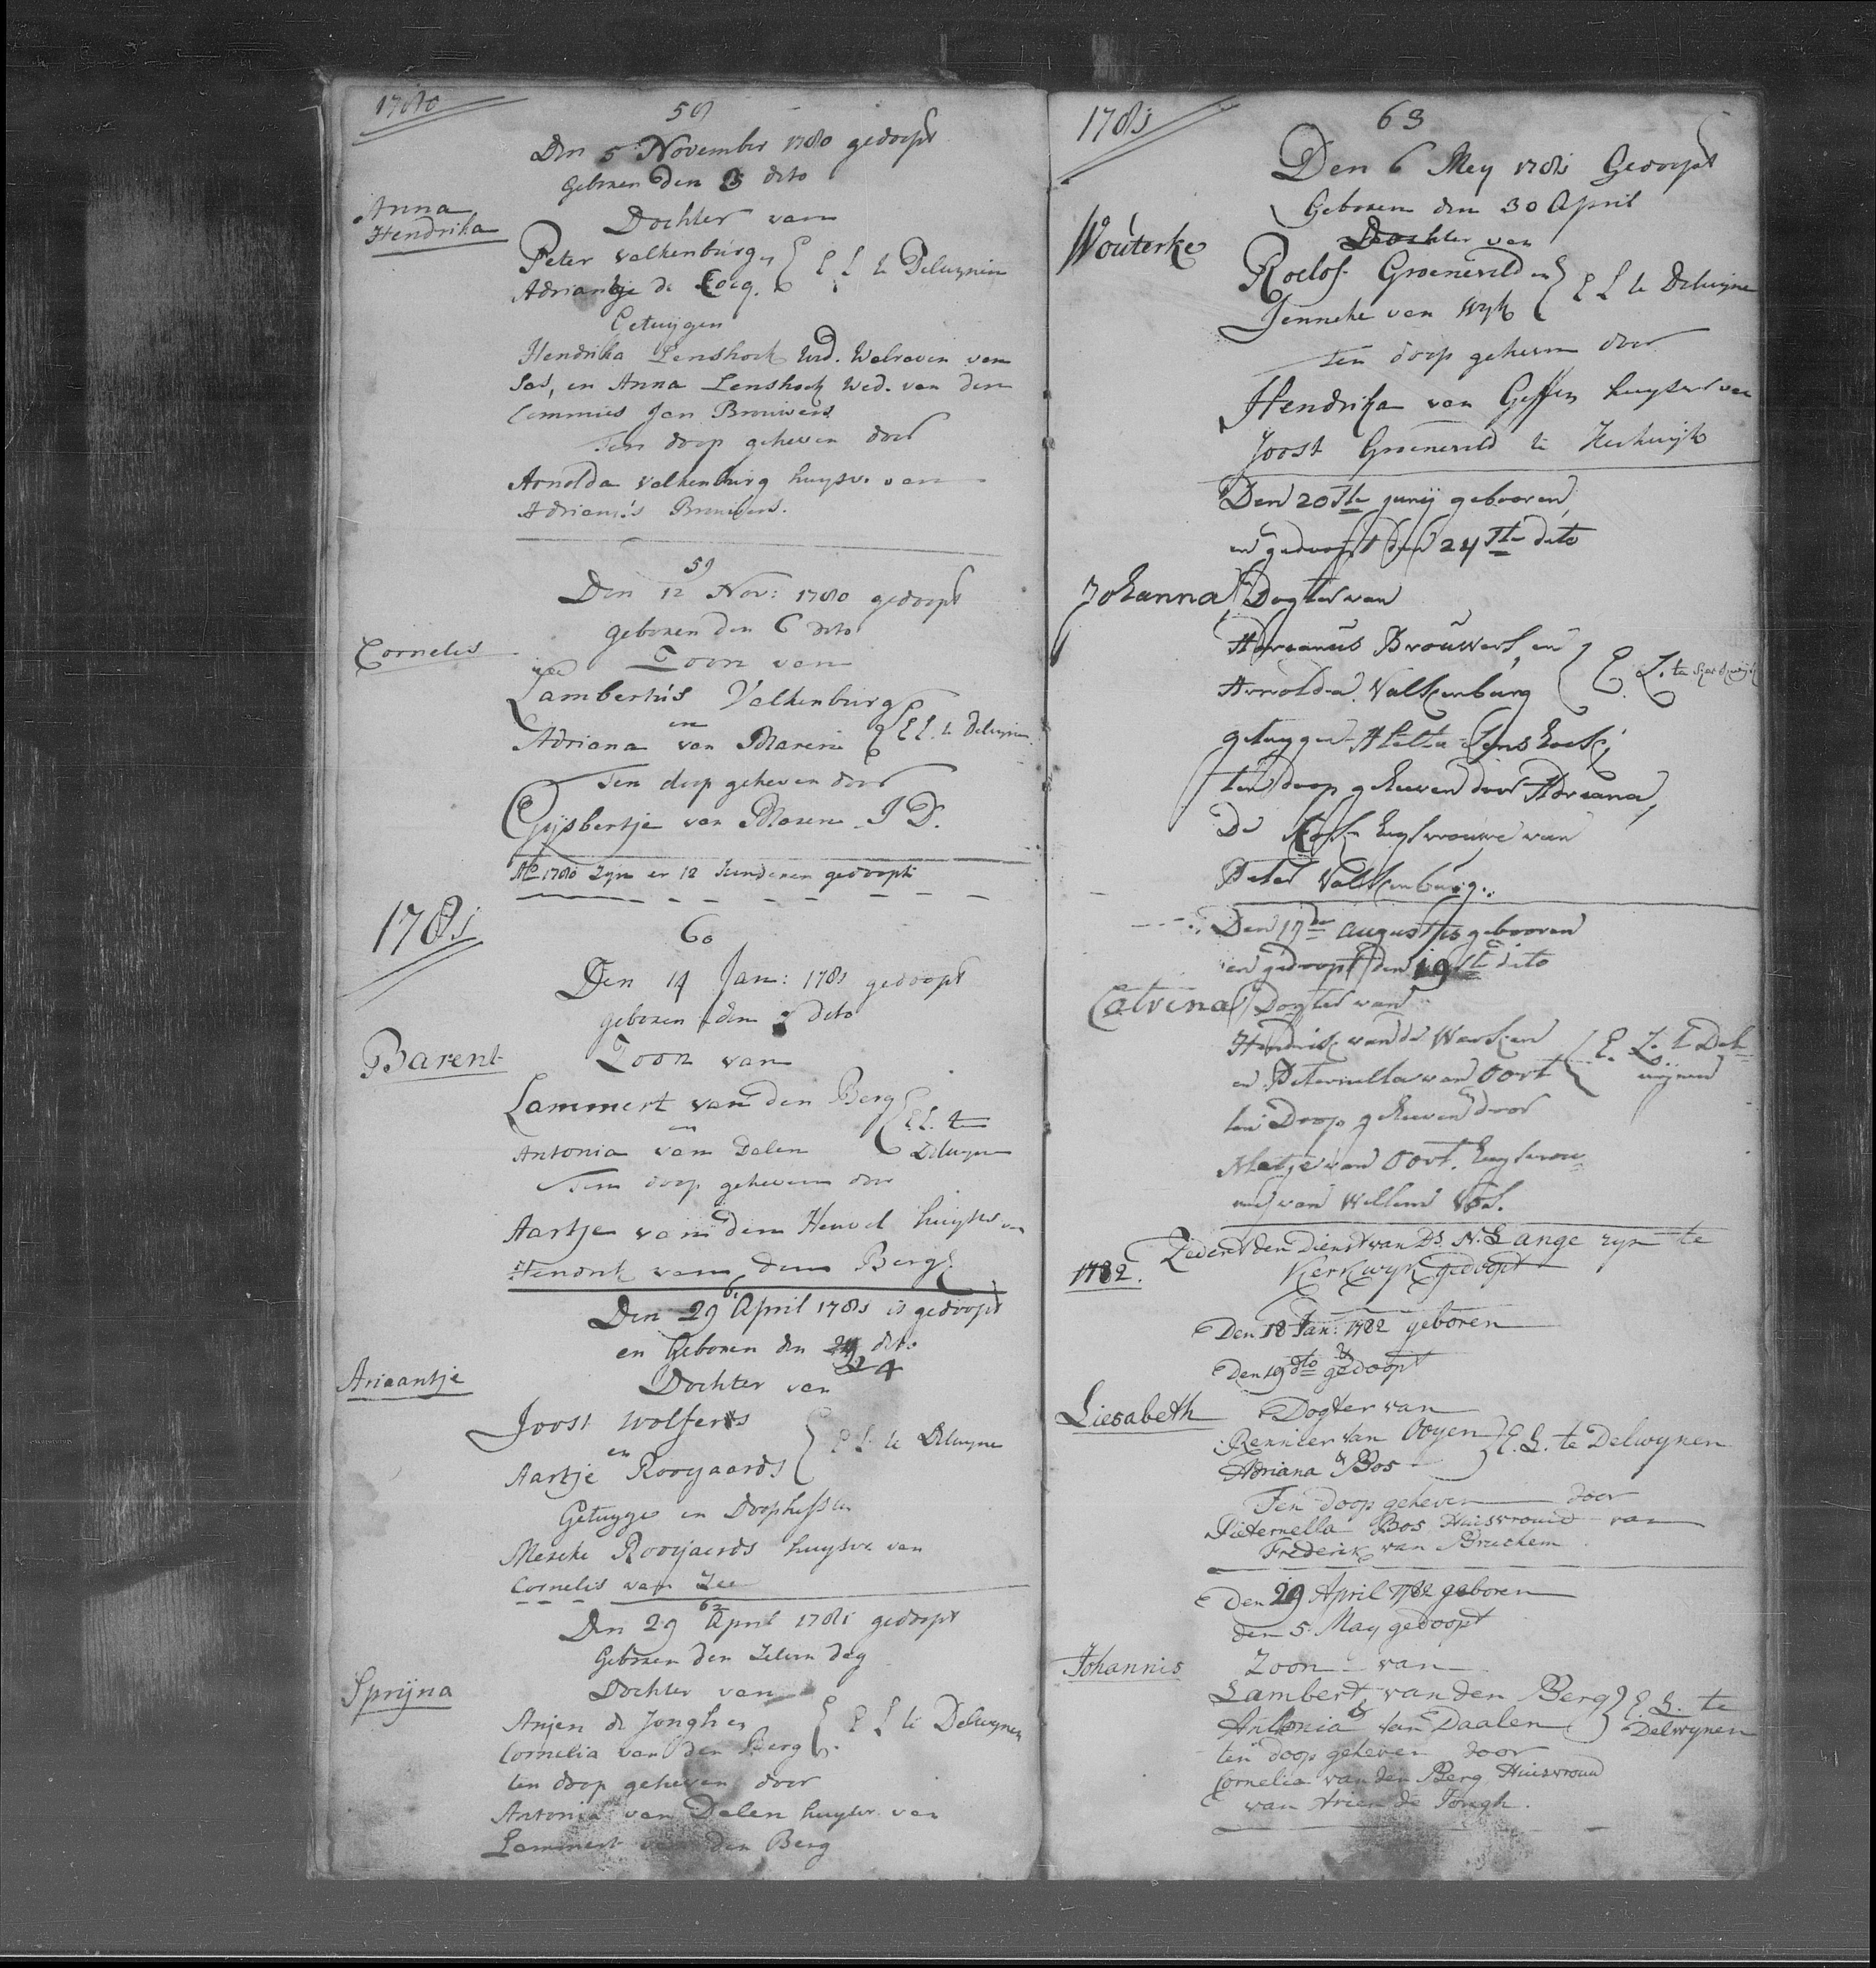 1780
58
Den 5 November 1780 gedoopt
Geboren den 3 dito
Anna
Hendrika
Dochter van
Peter Valkenburg,
Adriantje de Cocq. E L te Delwynen
Getuijgen
Hendrika Lenshoek Wed. Walraven van
Sas, en Anna Lenshoek Wed. van den
Commies Jan Brouwers
Ten doop geheven door
Arnolda Valkenburg huysv. van
Adrianus Brouwers.
59
Den 12 Nov: 1780 gedoopt
geboren den 6 dito
Cornelis
Zoon van
Lambertus Valkenburg
en
Adriana van Maren E L. te Delwynen
Ten doop geheven door
Gijsbertje van Maren J D.
Ao 1780 Zyn er 12 kinderen gedoopt
1781
60
Den 14 Jan: 1781 gedoopt
geboren den dito
Barent
Zoon van
Lammert van den Berg
en
Antonia van Dalen E L. te Delwynen
Ten doop geheven door
Aartje van den Heuvel huysv van
Hendrik van den Berg
61
Den 29 April 1781 is gedoopt
en Geboren den 24 dito
24
Ariaantje
Dochter van
Joost Wolferts
en
Aartje Rooyaards E L te Delwyne
Getuyge en Doophefster
Meseke Rooyaards huysvr van
Cornelis van Zee
62
Den 29 April 1781 gedoopt
Geboren den Zelven dag
Sprijna
Dochter van
Arjen de Jongh en
Cornelia van den Berg E L te Delwynen
ten doop geheven door
Antonia van Dalen huysvr van
Lammert van den Berg
1781
63
Den 6 Mey 1781 Gedoopt
Geboren den 30 April
Wouterke
Dochter van
Roelof Groeneveld en
Jenneke van Wyk E L te Delwyne
Ten doop geheven door
Hendrika van Geffen huysvr van
Joost Groeneveld te Kerkwijk
Den 20ste junij gebooren,
en gedoopt den 24ste dito
Johanna Dogter van
Adrianus Brouwers, en
Arnolda Valkenburg E. L. te
getuygen Aletta Lenshoek;
ten doop geheeven door Adriana,
De Kok huysvrouwe van
Peter Valkenburg.
Den 17de augustus gebooren
en gedoopt den 19de dito
Catrina Dogter van
Hendrik van de Werken
en Peternella van Oort E. L. te Delwijnen
ten Doop geheeven door
Metje van Oort. huysvrou
we van Willem Vos.
Zedert den Dienst van Ds. N. Lange zyn te
Kerkwyk gedoopt
1782.
Den 18 Jan: 1782 geboren
&
Den 19 dto gedoopt
Liesabeth
Dogter van
Rennier van Ooyen
& Adriana Bos E. L. te Delwynen
Ten doop geheven door
Pieternella Bos Huisvrouw van
Frederik van Bruchem.
Den 29 April 1782 geboren
den 5 May gedoopt
Johannis
Zoon van
Lambert van den Berg
& Antonia van Daalen E. L. te Delwynen
ten doop geheven door
Cornelia van den Berg Huisvrouw
van Arien de Jongh.